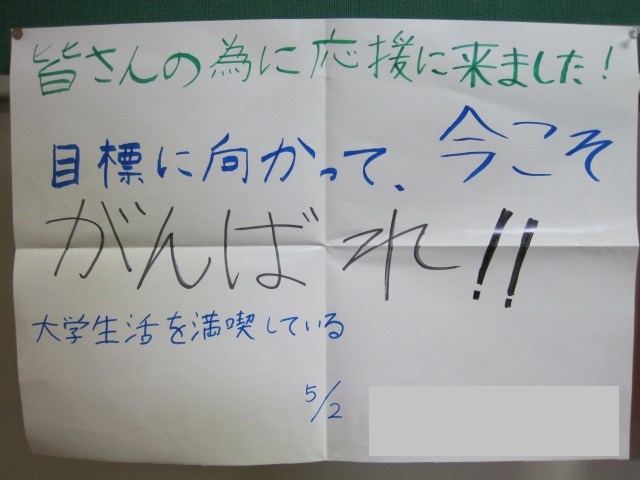 皆さんの為に応援に来ました！
目標に向かって、今こそ
がんばれ!!
大学生活を満喫している
5/2